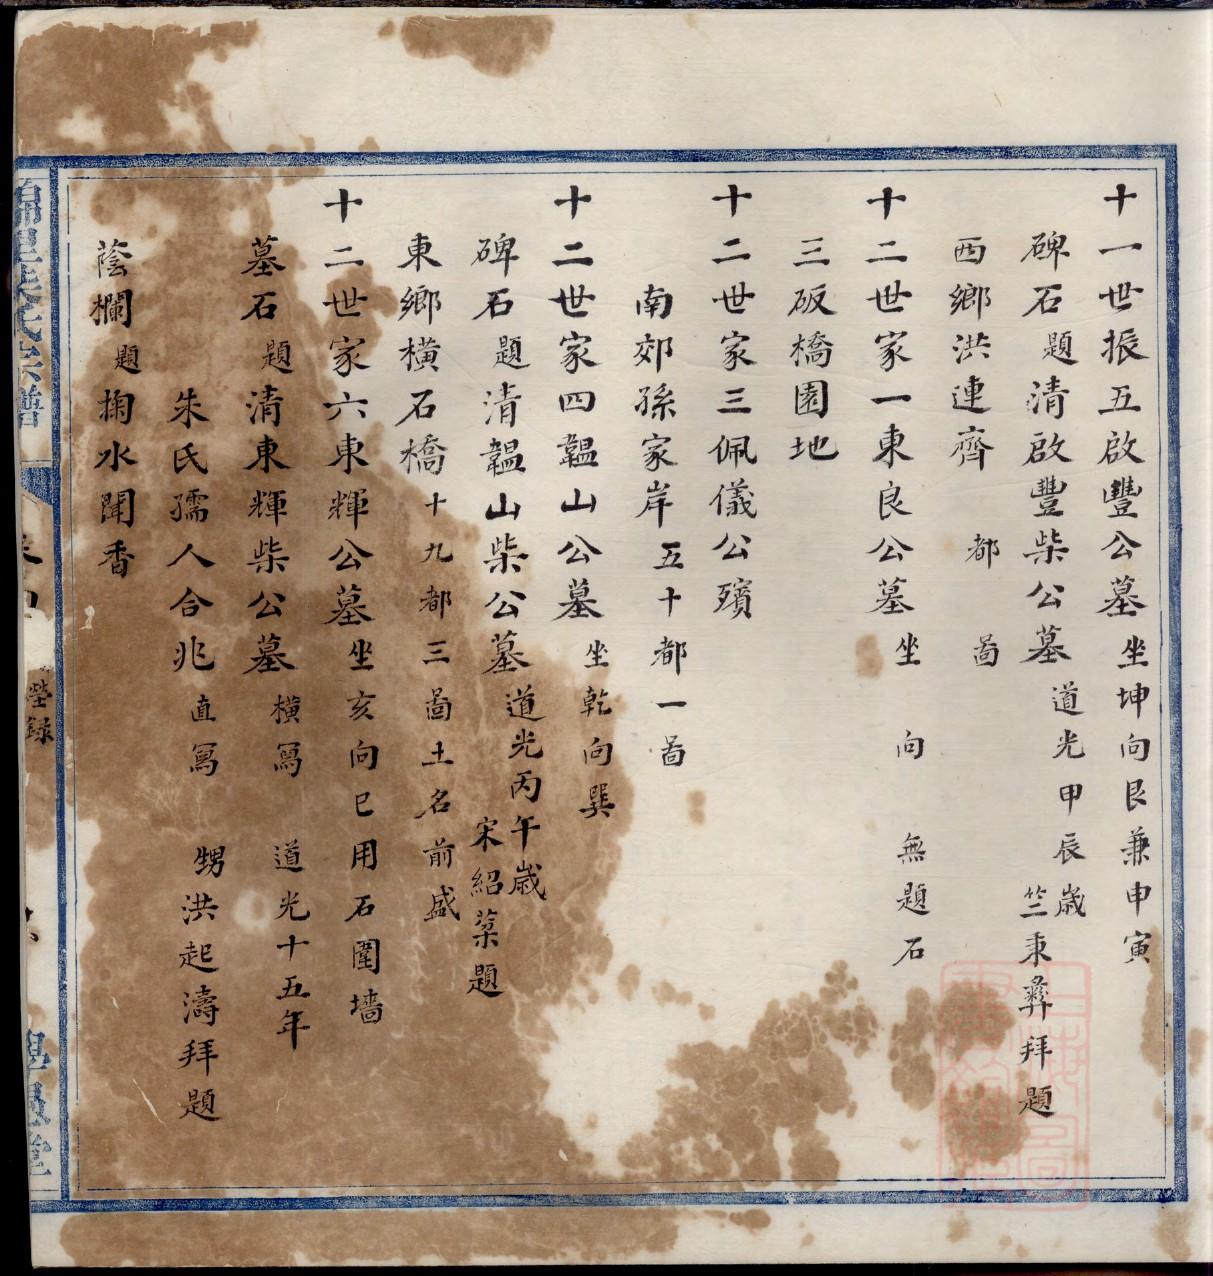 十一世振五啟豐公墓坐坤向艮兼申寅
碑石題清啟豐柴公墓道光甲辰歲竺秉彝拜題
西鄉洪連齊 都 啚
十二世家一東良公墓坐 向 無題石
三砋橋園地
十二世家三佩儀公殯
南郊孫家岸五十都一啚
十二世家四韞山公墓坐乾向巽
碑石題清韞山柴公墓道光丙午歲宋紹棻題
東鄉橫石橋十九都三啚土名前盛
十二世家六東輝公墓坐亥向巳用石圍墻
墓石題清東輝柴公墓橫寫 道光十五年
朱氏孺人合兆直寫 甥洪起濤拜題
蔭欄題掬水聞香
氏宗譜
塋錄